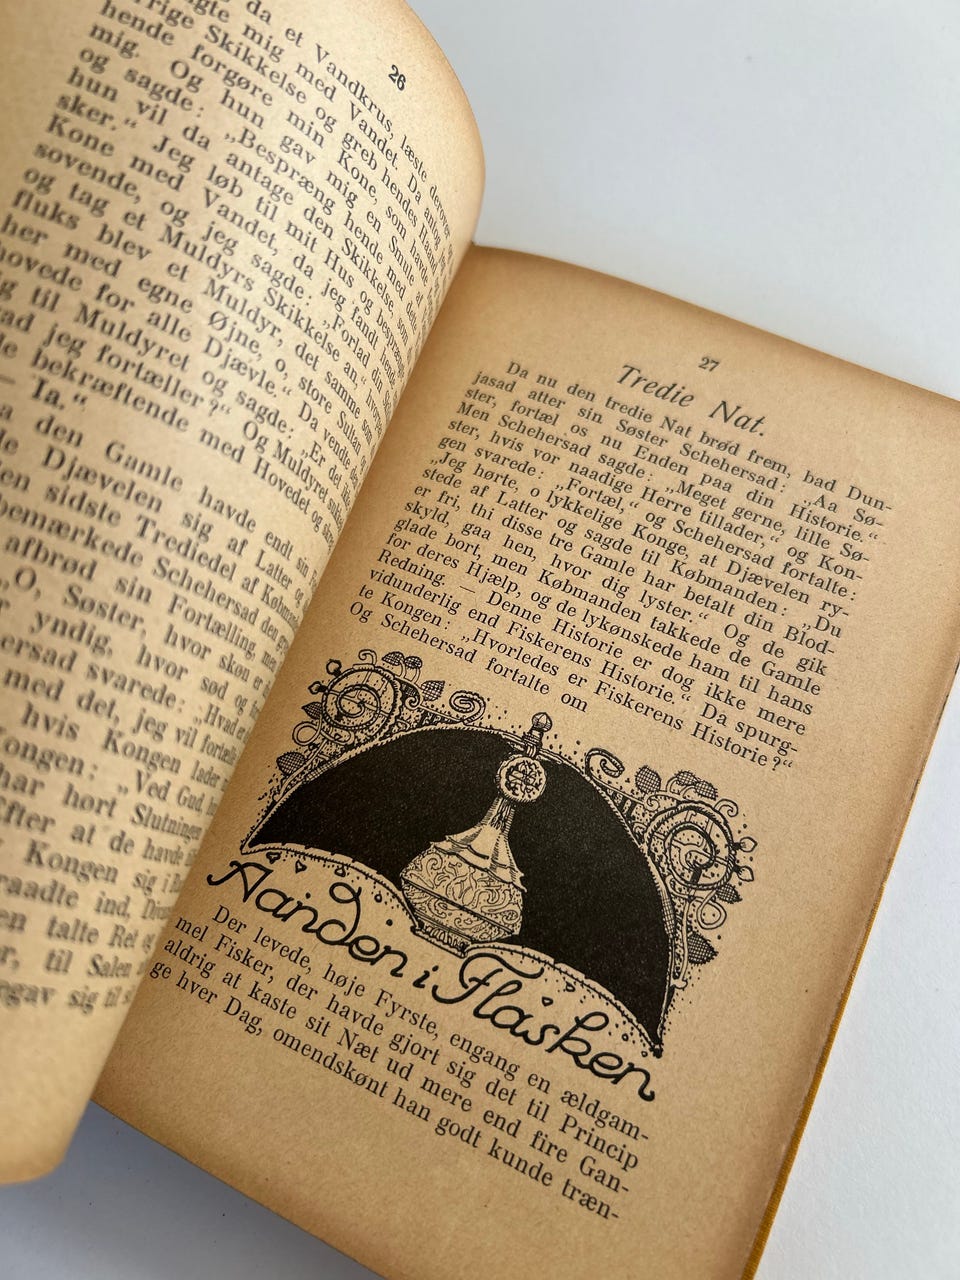 26
da et Vandkrus, læste derover
mig med Vandet. Da antog
Skikkelse og greb hendes Haand
hende forgøre min Kone, som havde
mig. Og hun gav mig en Smule af
og sagde: „Bespræng hende med dette
hun vil da antage den Skikkelse, som
sker.“ Jeg løb til mit Hus og
Kone med Vandet, da jeg fandt hende
sovende, og jeg sagde: „Forlad din
og tag et Muldyrs Skikkelse an,“
fluks blev et Muldyr, det samme som
her med egne Øjne, o, store Sultan og
hovede for alle Djævle.“ Da vendte
til Muldyret og sagde: „Er det ikke
jeg fortæller?“ Og Muldyret
bekræftende med Hovedet og
— Ia.“
den Gamle havde endt sin
Djævelen sig af Latter og
sidste Trediedel af
bemærkede Schehersad den
afbrød sin Fortælling, men
„O, Søster, hvor skøn er
yndig, hvor sød og
svarede: „Hvad
med det, jeg vil fortælle
hvis Kongen lader
„Ved Gud,
har hørt Slutningen
at de havde
Kongen sig i
ind,
talte Ret og
til Salen
sig til
27
Tredie Nat.
Da nu den tredie Nat brød frem, bad Dun-
jasad atter sin Søster Schehersad: „Aa Sø-
ster, fortæl os nu Enden paa din Historie.“
Men Schehersad sagde: „Meget gerne, lille Sø-
ster, hvis vor naadige Herre tillader,“ og Kon-
gen svarede: „Fortæl,“ og Schehersad fortalte:
„Jeg hørte, o lykkelige Konge, at Djævelen ry-
stede af Latter og sagde til Købmanden: „Du
er fri, thi disse tre Gamle har betalt din Blod-
skyld, gaa hen, hvor dig lyster.“ Og de gik
glade bort, men Købmanden takkede de Gamle
for deres Hjælp, og de lykønskede ham til hans
Redning. — Denne Historie er dog ikke mere
vidunderlig end Fiskerens Historie.“ Da spurg-
te Kongen: „Hvorledes er Fiskerens Historie?“
Og Schehersad fortalte om
Aanden i Flasken
Der levede, høje Fyrste, engang en ældgam-
mel Fisker, der havde gjort sig det til Princip
aldrig at kaste sit Næt ud mere end fire Gan-
ge hver Dag, omendskønt han godt kunde træn-